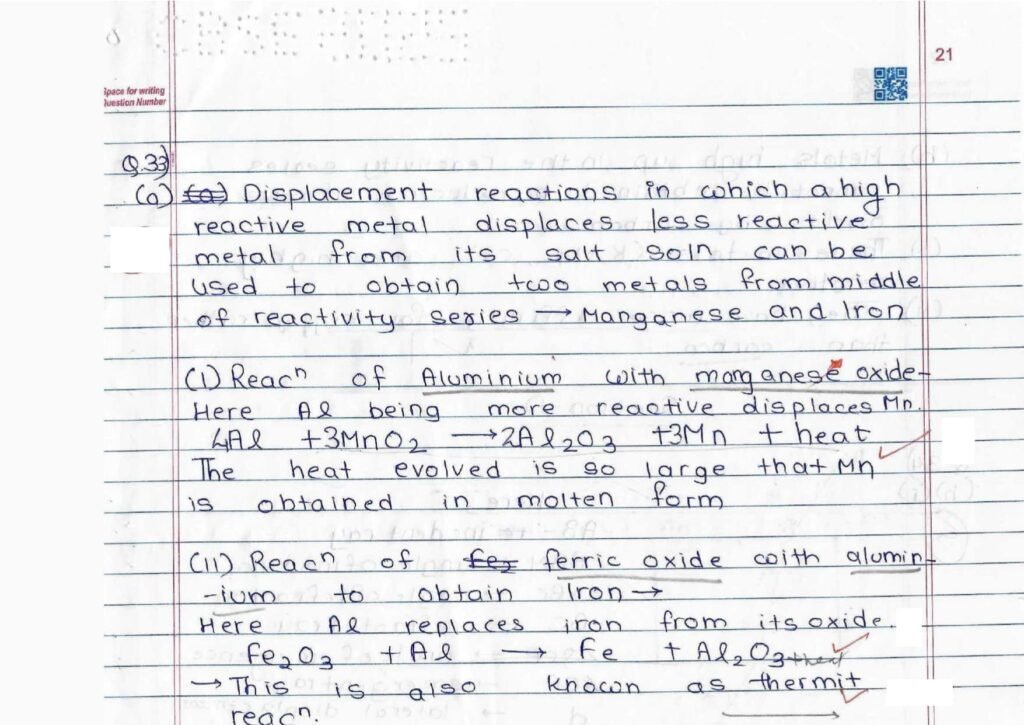 21
Space for writing
Question Number
Q.33)
(a) (a) Displacement reactions in which a high
reactive metal displaces less reactive
metal from its salt soln can be
used to obtain two metals from middle
of reactivity series → Manganese and Iron
(I) Reacⁿ of Aluminium with manganese oxide-
Here Al being more reactive displaces Mn.
4Al +3MnO₂ → 2Al₂O₃ +3Mn + heat
The heat evolved is so large that Mn
is obtained in molten form
(II) Reacⁿ of fe₂ ferric oxide with alumin-
-ium to obtain Iron →
Here Al replaces iron from its oxide.
Fe₂O₃ + Al → Fe + Al₂O₃ +heat
→ This is also known as thermit
reacⁿ.